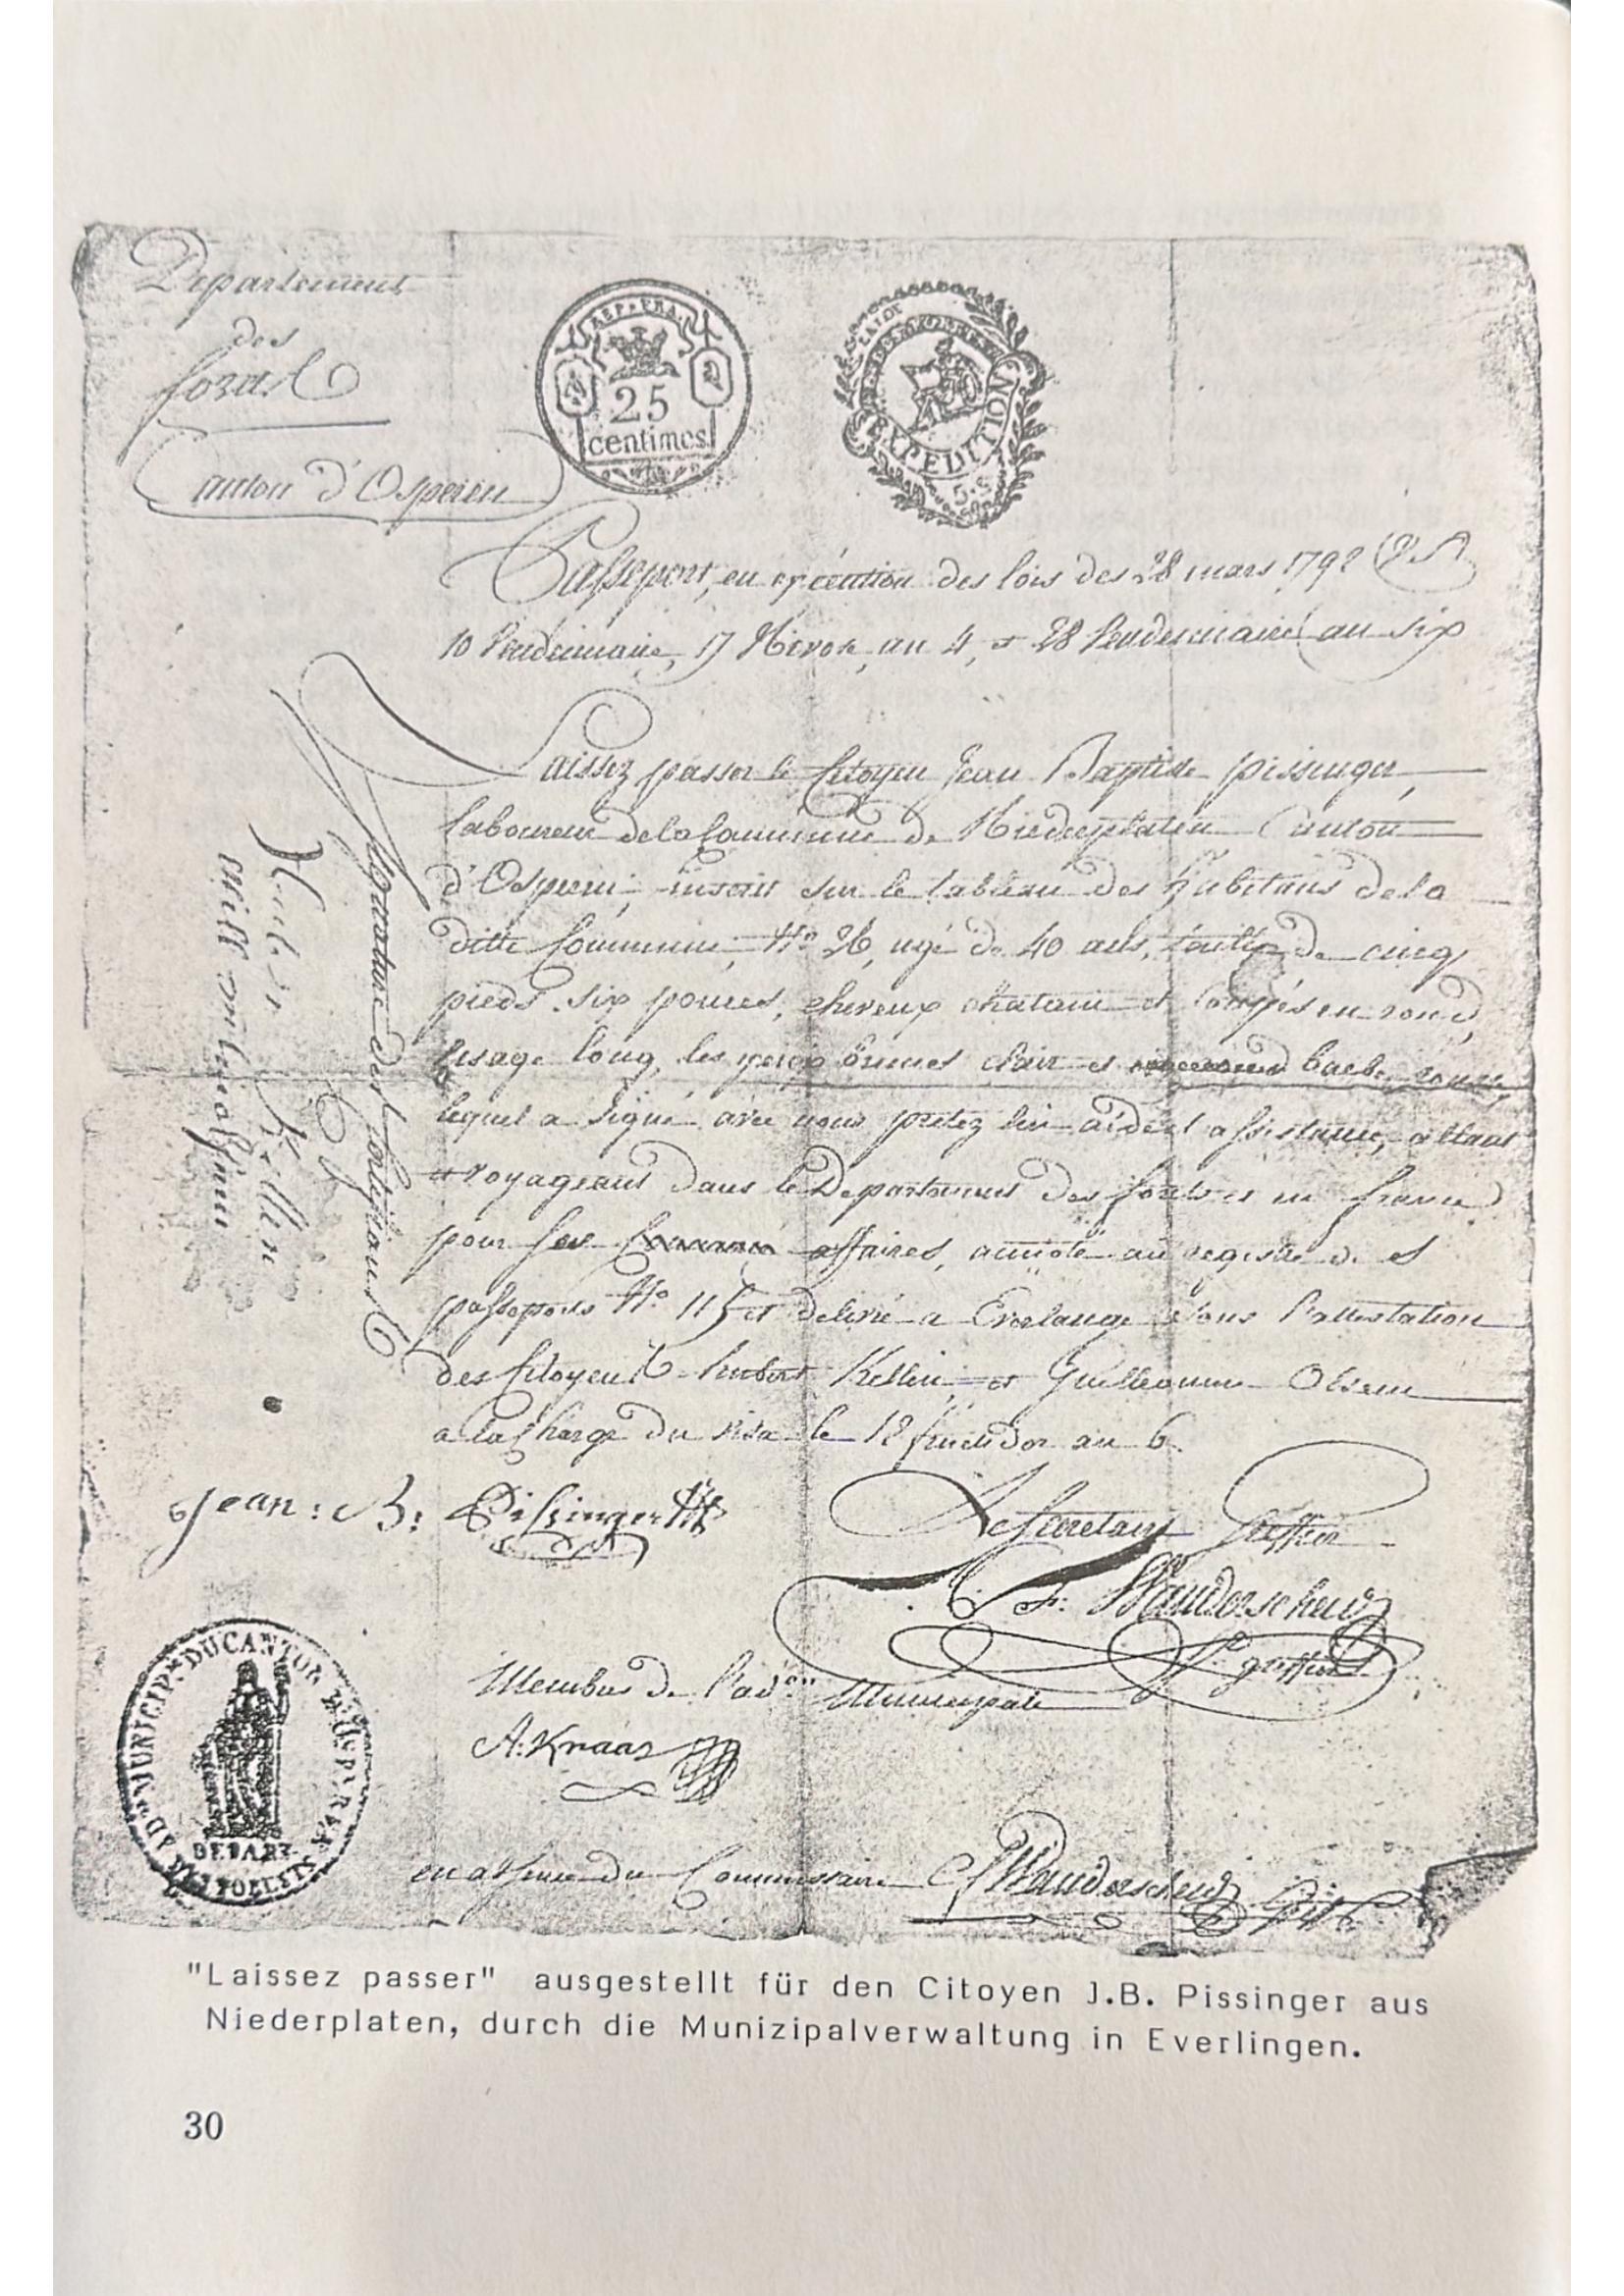 Departement
des
forets
Canton d'Osperen
REP. FRA.
25
centimes
LOI DE
EXPEDITION
Passeport, en exécution des lois des 28 mars 1792
10 Vendemiaire, 17 Nivose, an 4, et 28 Vendemiaire an six
Laissez passer le Citoyen Jean Baptiste pissinger,
laboureur de la Commune de Niederplaten Canton
d'Osperen, inscrit sur le tableau des habitans de la
ditte Commune, No 26, agé de 40 ans, taille de cincq
pieds six pouces, cheveux chatain et coupés en rond,
visage long, les yeux brunes clair et barbe rousse,
lequel a signé avec nous pretez lui aide et assistance, allant
et voyageant dans le Departement des forets et en france
pour ses affaires, annoté au registre des
passeports No 115 et delivré a Everlange sous l'attestation
des Citoyens hubert Kellen, et Guilleaume Olsem
a la charge du visa le 18 fructidor an 6.
Signature des
Hubert Kellen
Jean: B: Pissinger
Le Secretaire Greffier
F. Wanderscheid
greffier
Membre de l'adon Municipale
A. Kraas
ADon MUNICIPe DU CANTON
DEPART
en absence du Commissaire Wanderscheid
"Laissez passer" ausgestellt für den Citoyen J.B. Pissinger aus
Niederplaten, durch die Munizipalverwaltung in Everlingen.
30